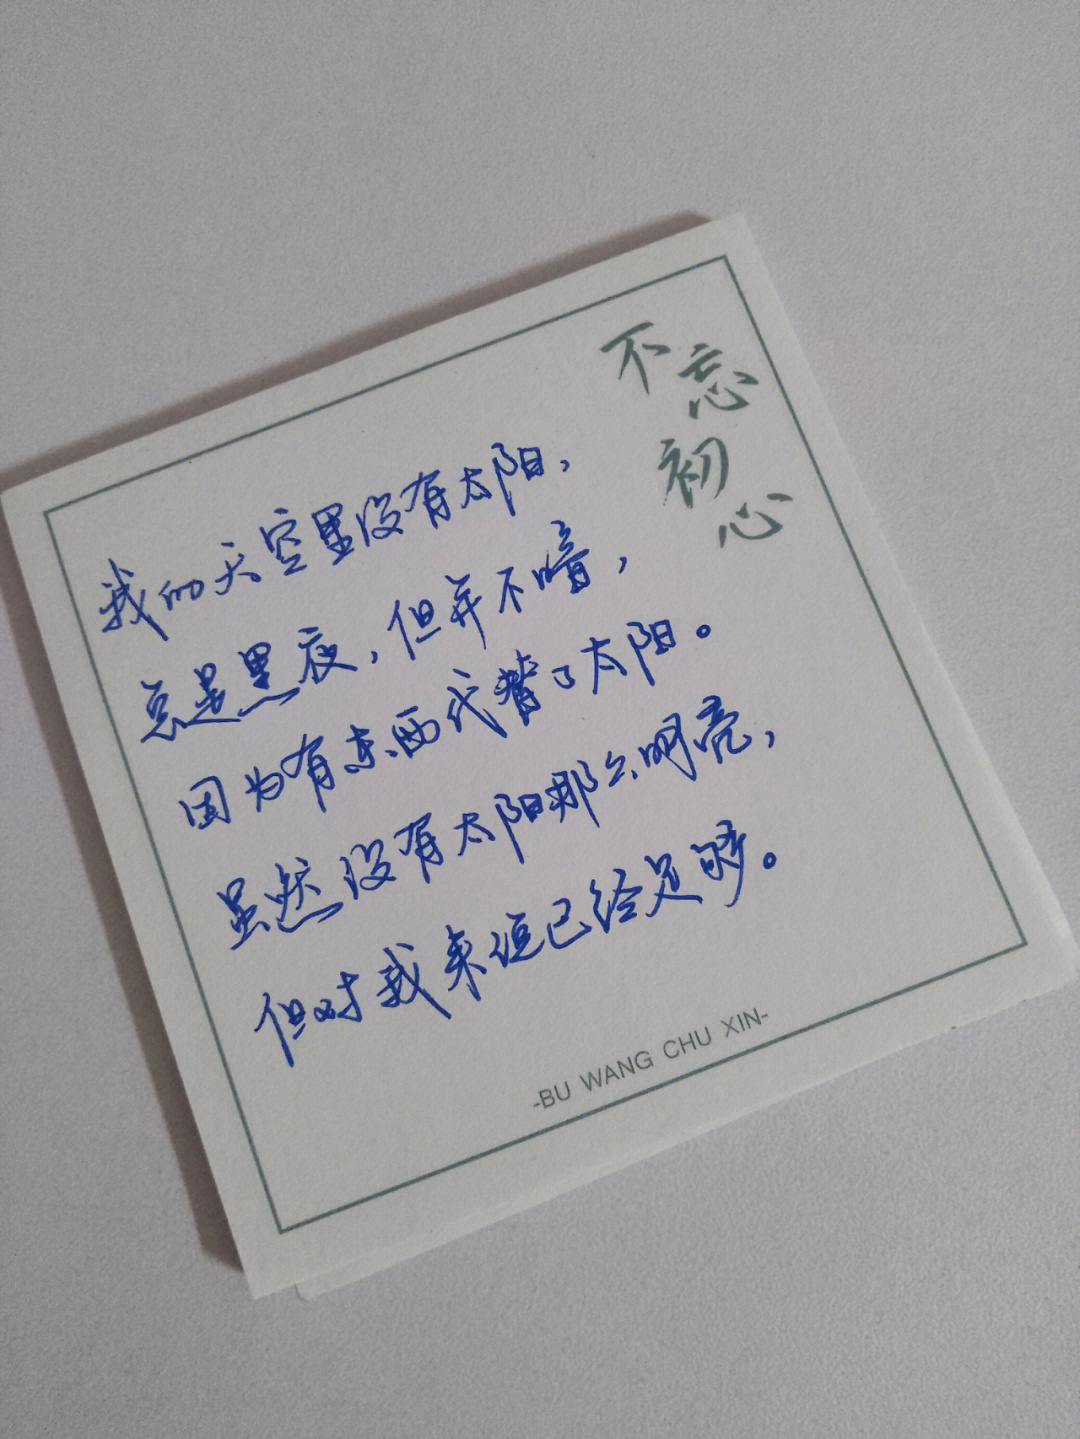 不忘初心
我的天空里没有太阳，
总是黑夜，但并不暗，
因为有东西代替了太阳。
虽然没有太阳那么明亮，
但对我来说已经足够。
-BU WANG CHU XIN-